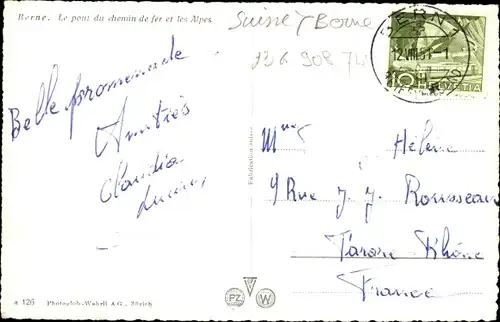 Berne. Le pont du chemin de fer et les Alpes
Suisse / Berne
BERN 1
12.VIII.51
10
HELVETIA
Belle promenade
Amitiés
Claudia
Hélène
9 Rue J. J. Rousseau
Tarare Rhône
France
Fabrication suisse
a 126 Photoglob-Wehrli A.G., Zürich
PZ
W